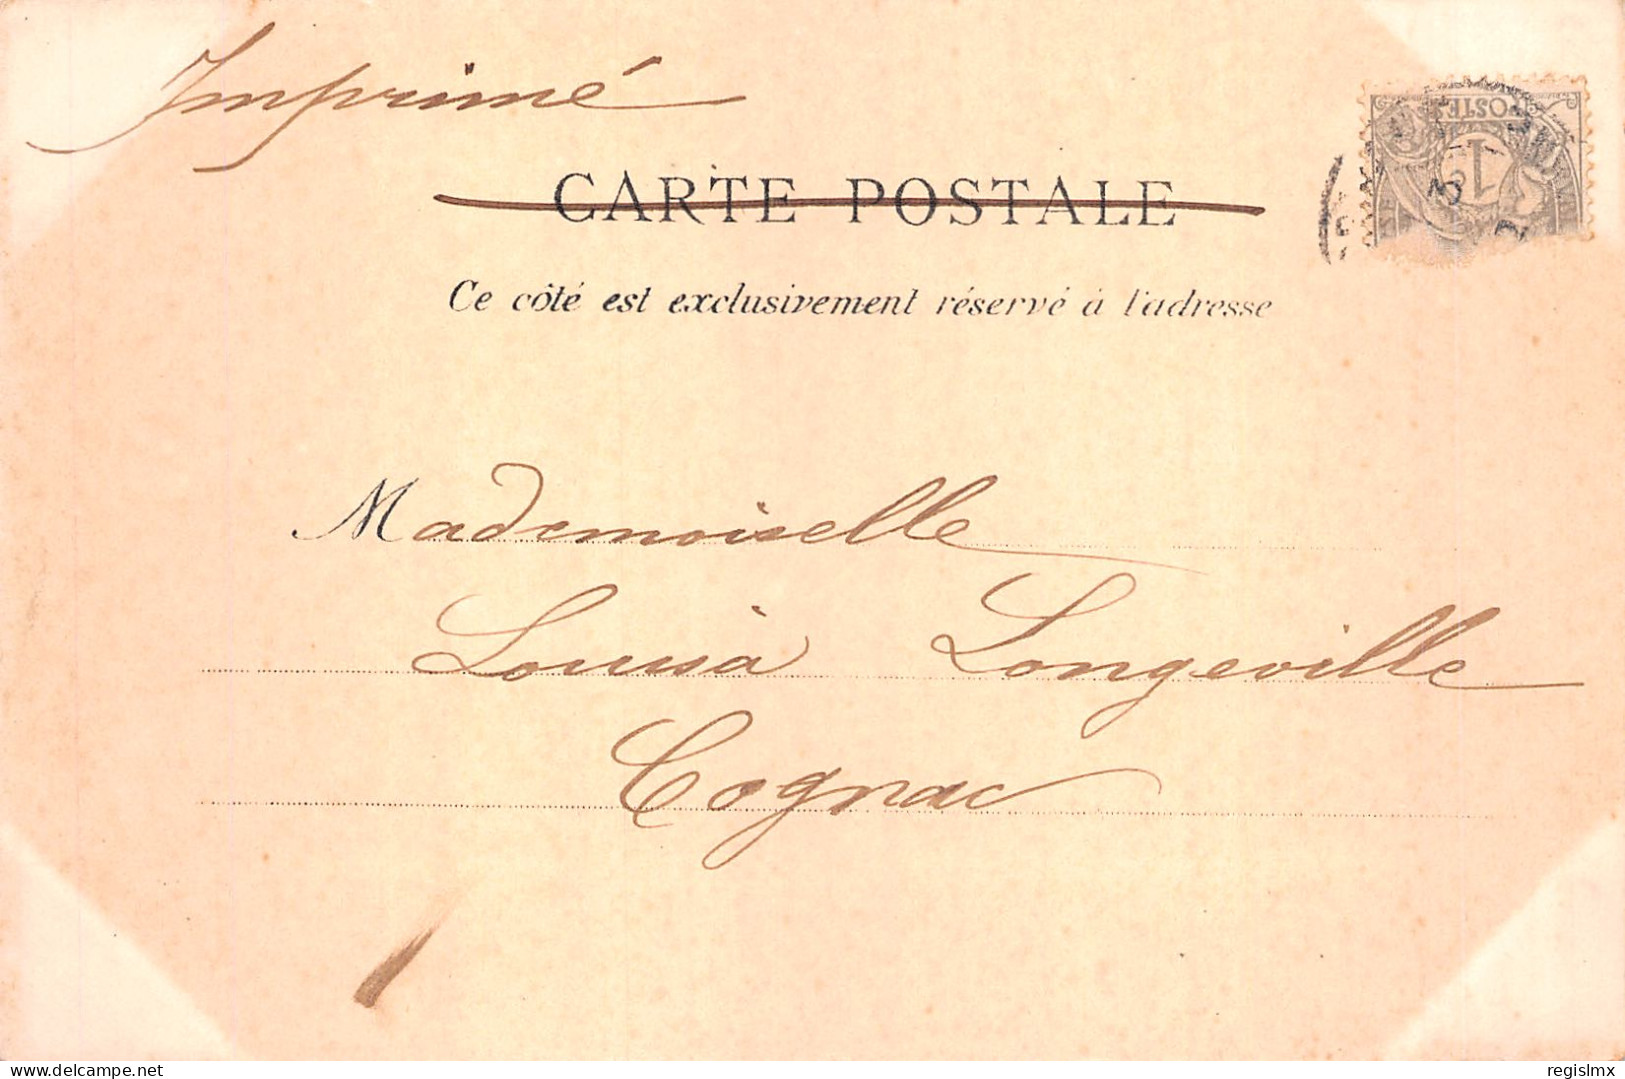 Imprimé
CARTE POSTALE
Ce côté est exclusivement réservé à l'adresse
POSTES
1c
3
Mademoiselle
Louisa Longeville
Cognac
delcampe.net
regislmx